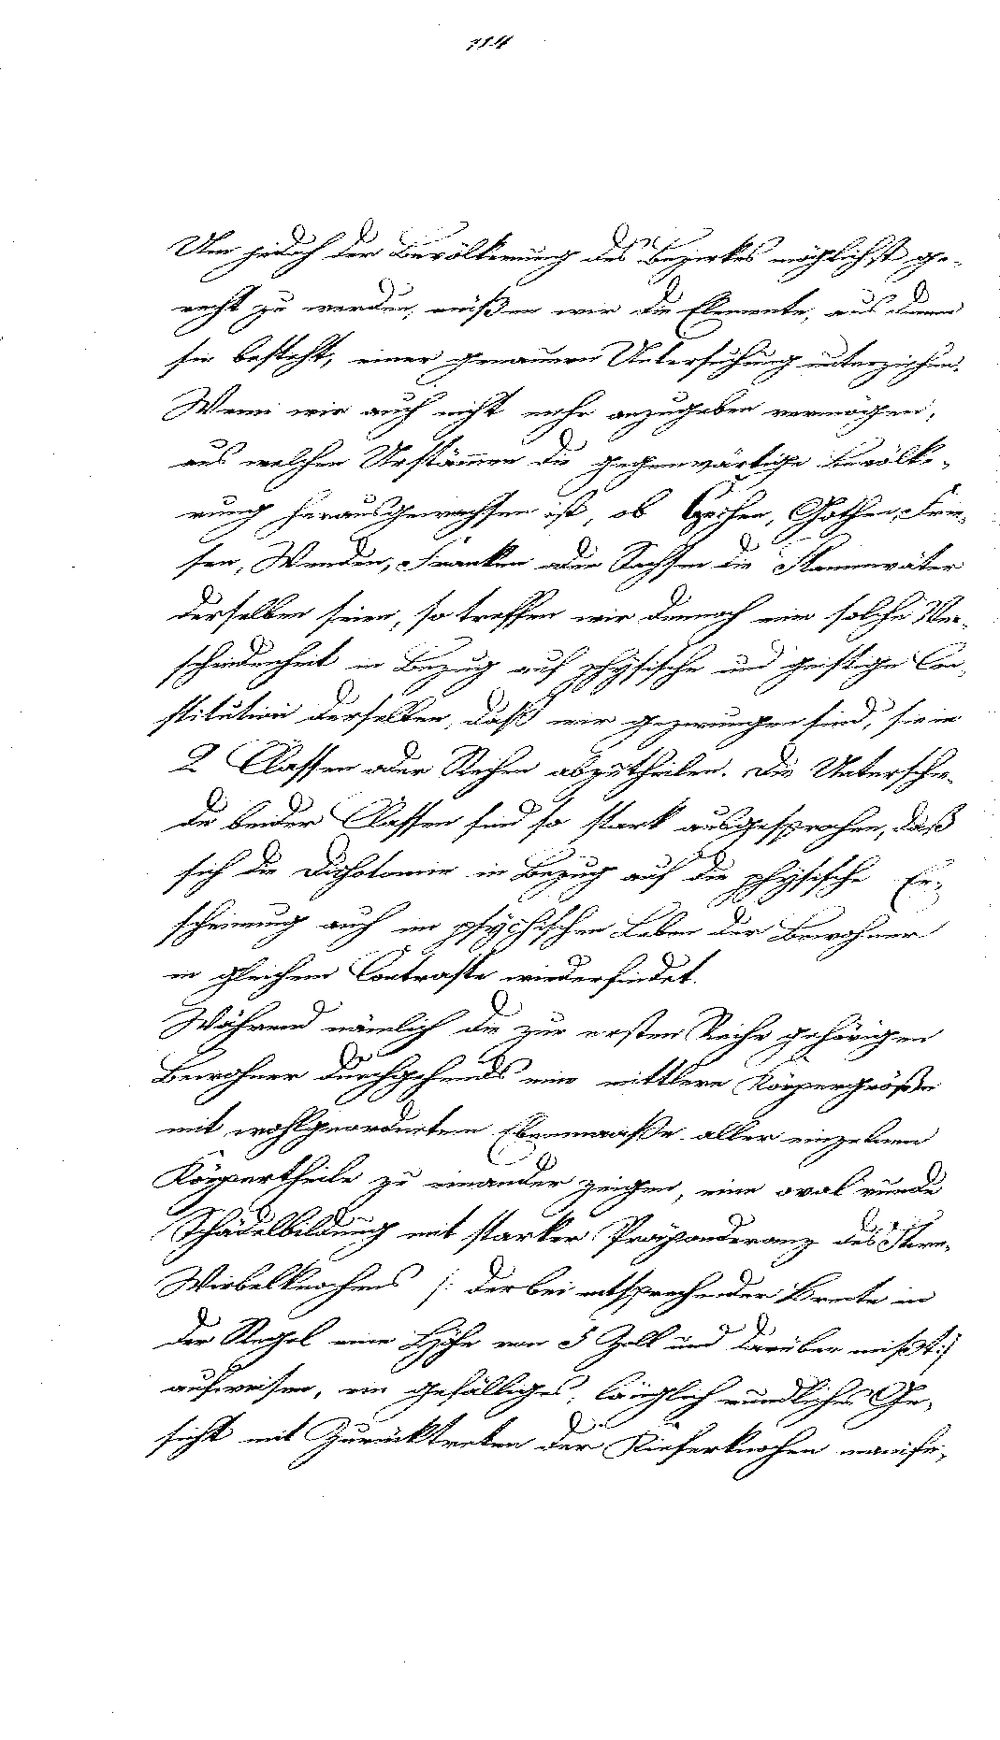 114
Um jedoch der Bevölkerung des Bezirkes möglichst ge-
recht zu werden, müßen wir die Elemente, aus denen
sie besteht, einer genauern Untersuchung unterziehen.
Wenn wir auch nicht mehr anzugeben vermögen,
aus welchen Urstämmen die gegenwärtige Bevölke-
rung herausgewachsen ist, ob Gothen, Frie-
sen, Wenden, Franken oder Sachsen die Stammväter
derselben seien, so treffen wir dennoch eine solche Ver-
schiedenheit in Bezug auf physische und geistige Con-
stitution derselben, daß wir gezwungen sind, sie in
2 Classen oder Reihen abzutheilen. Die Unterschie-
de beider Classen sind so stark ausgesprochen, daß
sich die Dichotomie in Bezug auf die physische Er-
scheinung auch im psychischen Leben der Bewohner
in gleichem Contraste wiederfindet.
Während nämlich die zur ersten Reihe gehörigen
Bewohner durchgehends eine mittlere Körpergröße
mit wohlgeordnetem Ebenmaaße aller einzelnen
Körpertheile zu einander zeigen, eine oval runde
Schädelbildung mit starker Präponderanz des Stirn-
Wirbelknochens /: der bei entsprechender Breite in
der Regel eine Höhe von 5 Zoll und darüber mißt :/
aufweisen, ein gefälliges, länglich rundliches Ge-
sicht mit Zurücktreten der Kieferknochen manife-